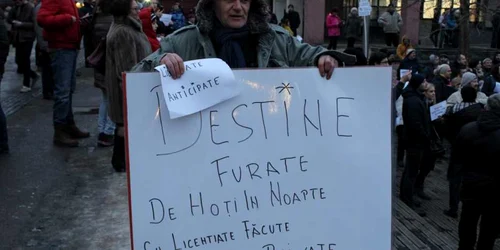 ANTICIPATE
DESTINE*
FURATE
DE HOȚI ÎN NOAPTE
CU LICENTIATE FĂCUTE
PRIVATE